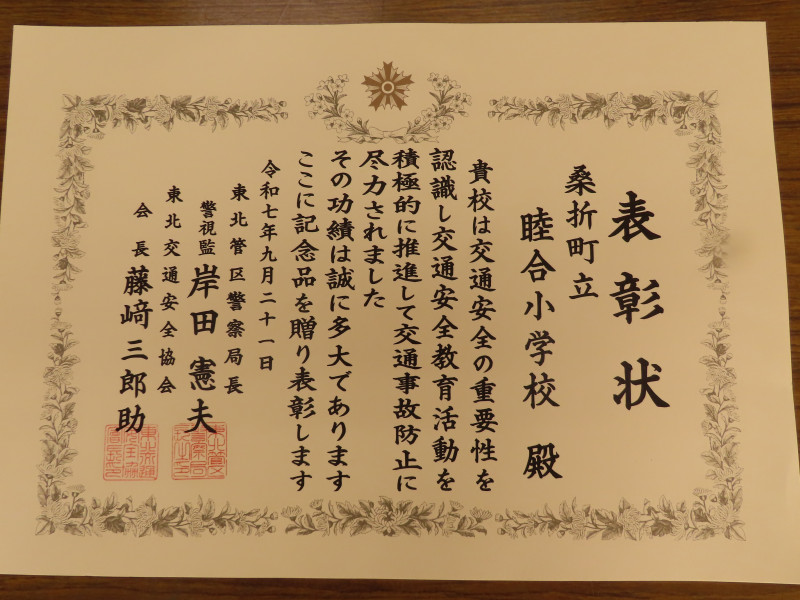 表彰状
桑折町立
睦合小学校 殿
貴校は交通安全の重要性を
認識し交通安全教育活動を
積極的に推進して交通事故防止に
尽力されました
その功績は誠に多大であります
ここに記念品を贈り表彰します
令和七年九月二十一日
東北管区警察局長
警視監 岸田憲夫
東北交通安全協会
会長 藤﨑三郎助